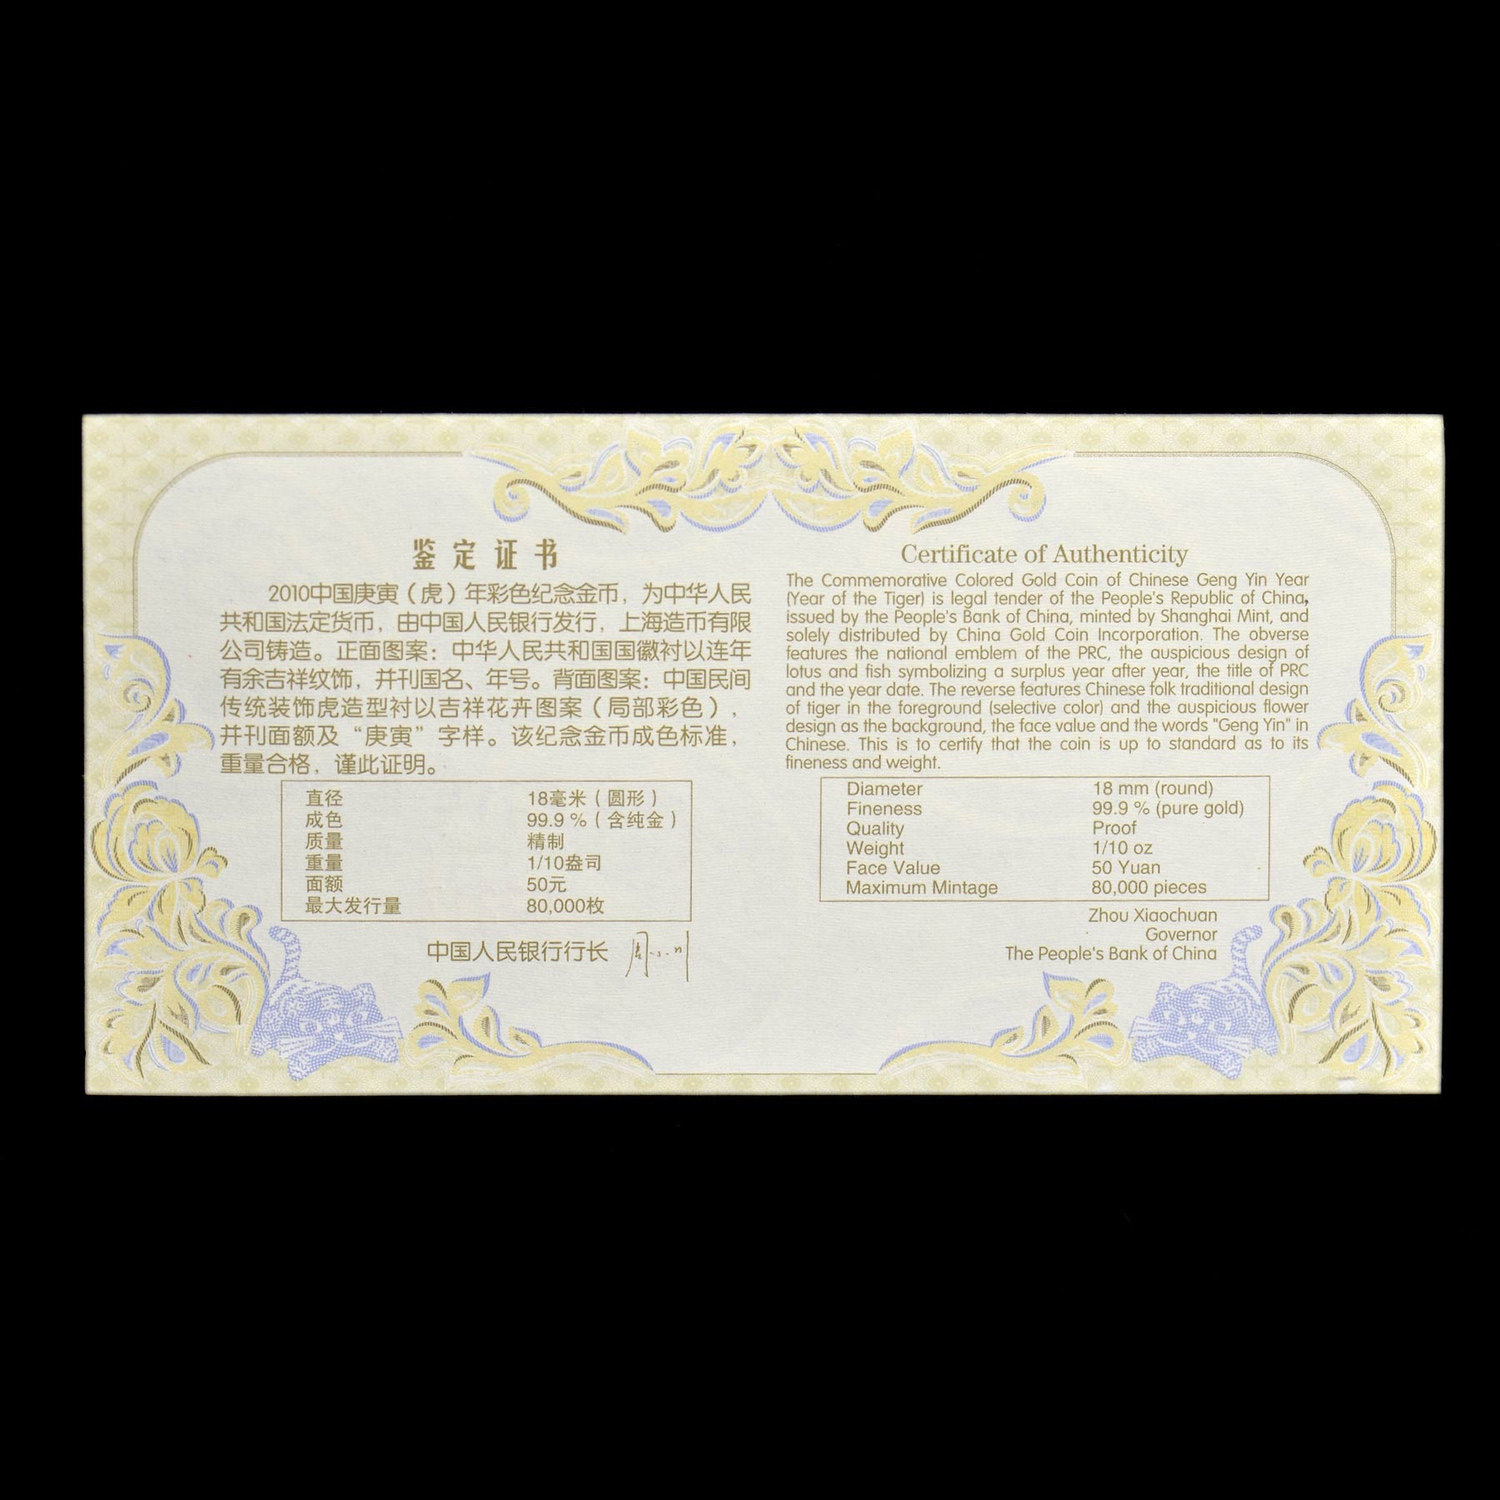 鉴定证书
2010中国庚寅（虎）年彩色纪念金币，为中华人民
共和国法定货币，由中国人民银行发行，上海造币有限
公司铸造。正面图案：中华人民共和国国徽衬以连年
有余吉祥纹饰，并刊国名、年号。背面图案：中国民间
传统装饰虎造型衬以吉祥花卉图案（局部彩色），
并刊面额及“庚寅”字样。该纪念金币成色标准，
重量合格，谨此证明。
直径 18毫米（圆形）
成色 99.9 %（含纯金）
质量 精制
重量 1/10盎司
面额 50元
最大发行量 80,000枚
中国人民银行行长
Certificate of Authenticity
The Commemorative Colored Gold Coin of Chinese Geng Yin Year
(Year of the Tiger) is legal tender of the People's Republic of China,
issued by the People's Bank of China, minted by Shanghai Mint, and
solely distributed by China Gold Coin Incorporation. The obverse
features the national emblem of the PRC, the auspicious design of
lotus and fish symbolizing a surplus year after year, the title of PRC
and the year date. The reverse features Chinese folk traditional design
of tiger in the foreground (selective color) and the auspicious flower
design as the background, the face value and the words "Geng Yin" in
Chinese. This is to certify that the coin is up to standard as to its
fineness and weight.
Diameter 18 mm (round)
Fineness 99.9 % (pure gold)
Quality Proof
Weight 1/10 oz
Face Value 50 Yuan
Maximum Mintage 80,000 pieces
Zhou Xiaochuan
Governor
The People's Bank of China